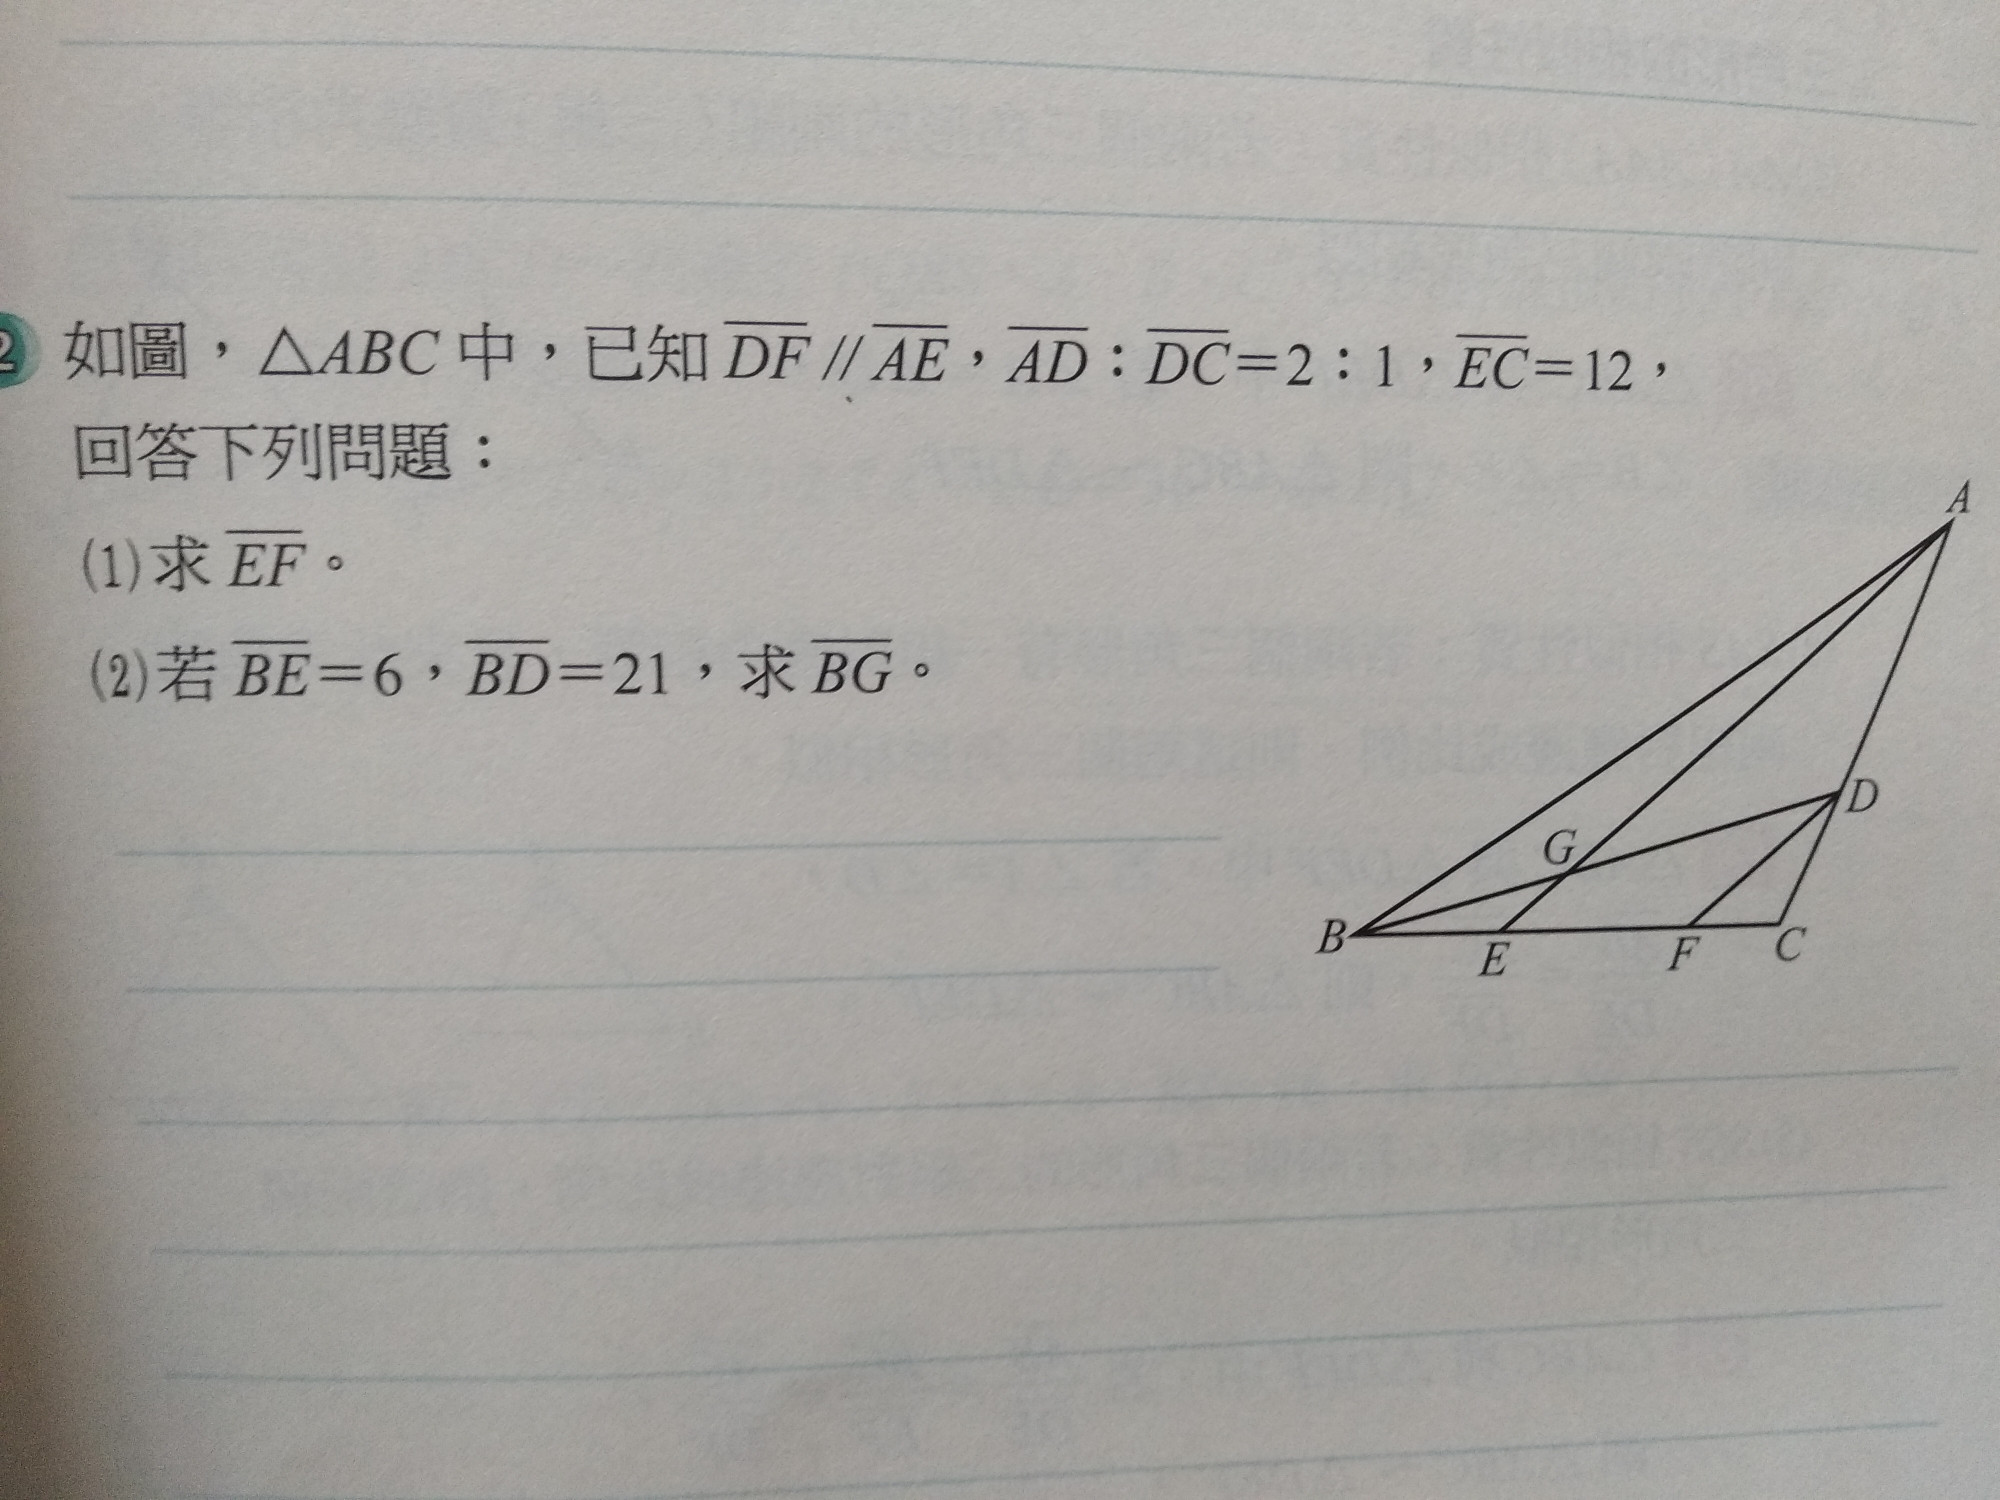 2 如圖，△ABC 中，已知 \overline{DF} // \overline{AE}，\overline{AD}：\overline{DC}=2：1，\overline{EC}=12，
回答下列問題：
(1)求 \overline{EF}。
(2)若 \overline{BE}=6，\overline{BD}=21，求 \overline{BG}。
A
D
G
B
E
F
C